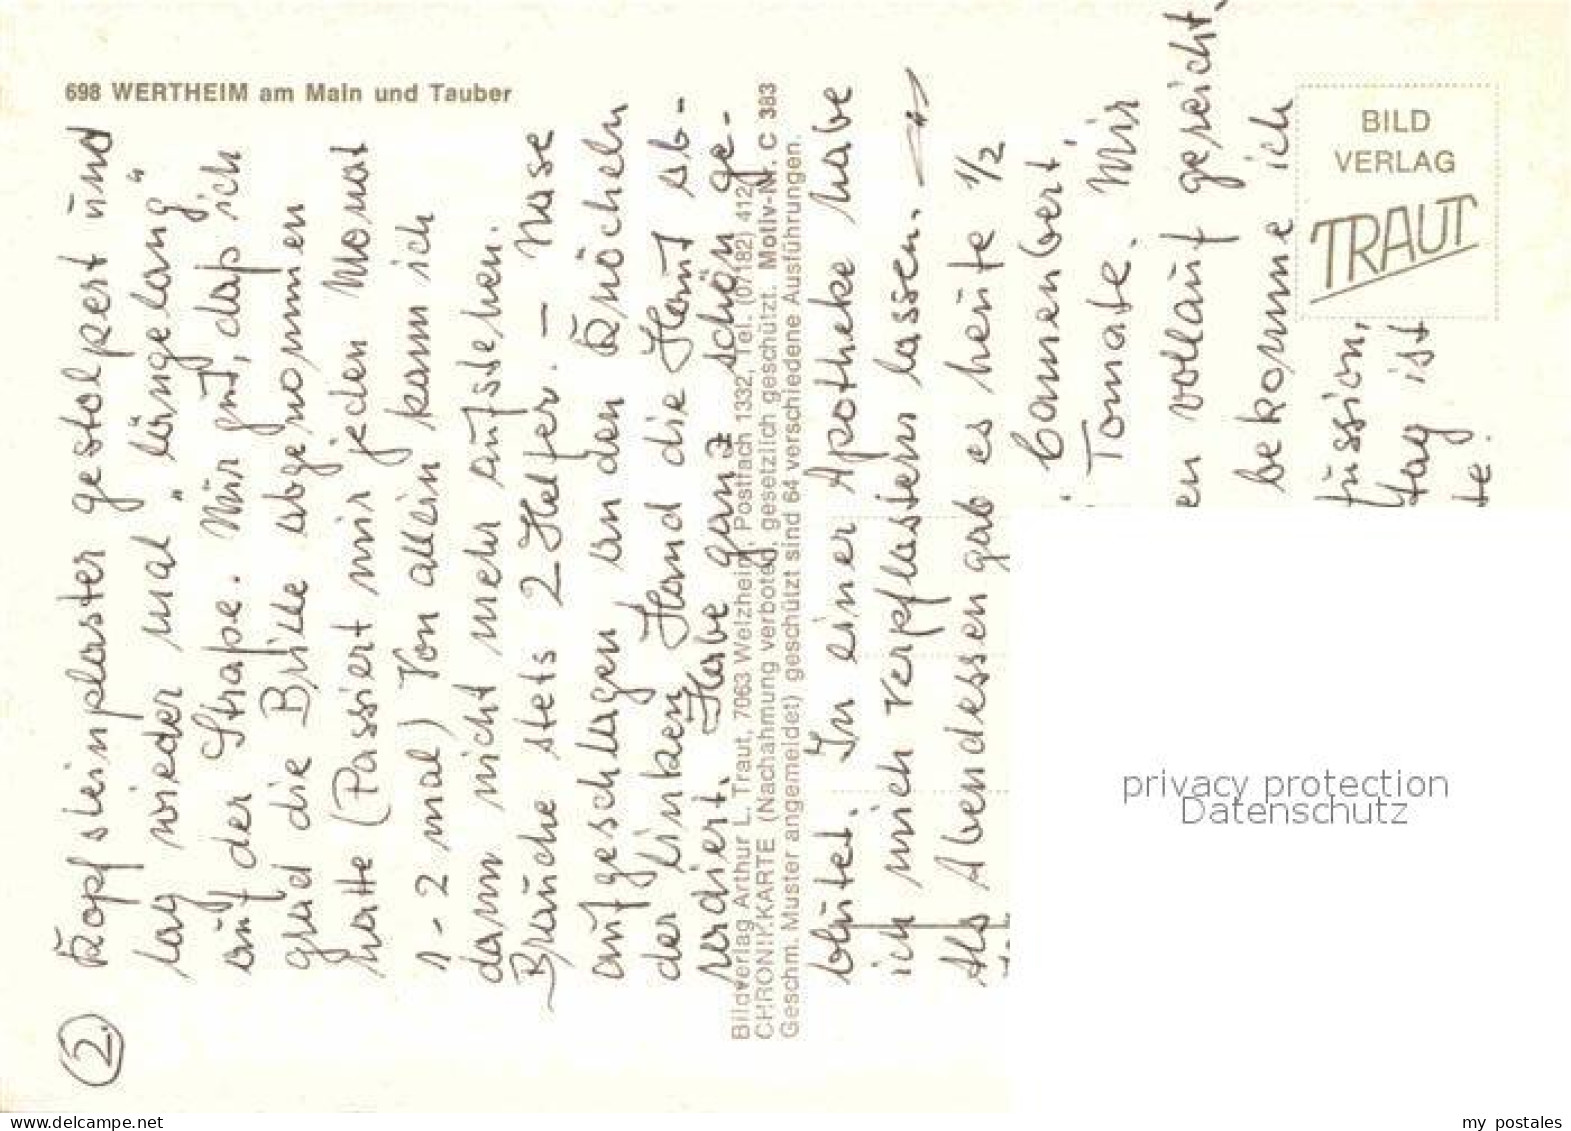 698 WERTHEIM am Main und Tauber
BILD
VERLAG
TRAUT
2.
Kopfsteinplaster gestolpert und
lag wieder mal "längelang"
auf der Straße. Nur gut, daß ich
grad die Brille abgenommen
hatte (Passiert mir jeden Monat
1-2 mal) Von allein kann ich
dann nicht mehr aufstehen.
Brauche stets 2 Helfer. - Nase
aufgeschlagen an den Knöcheln
der linken Hand die Haut ab-
radiert. Habe ganz schön ge-
blutet. In einer Apotheke habe
ich mich verpflastern lassen.
Als Abendessen gab es heute 1/2
Camenbert,
Tomate. Mir
en vollauf gereicht.
bekomme ich
fussion,
tag ist
te!
Bildverlag Arthur L. Traut, 7063 Welzheim, Postfach 1332, Tel. (07182) 412
CHRONIKKARTE (Nachahmung verboten, gesetzlich geschützt. Motiv-Nr. C 383
Geschm. Muster angemeldet) geschützt sind 64 verschiedene Ausführungen.
privacy protection
Datenschutz
www.delcampe.net
my_postales